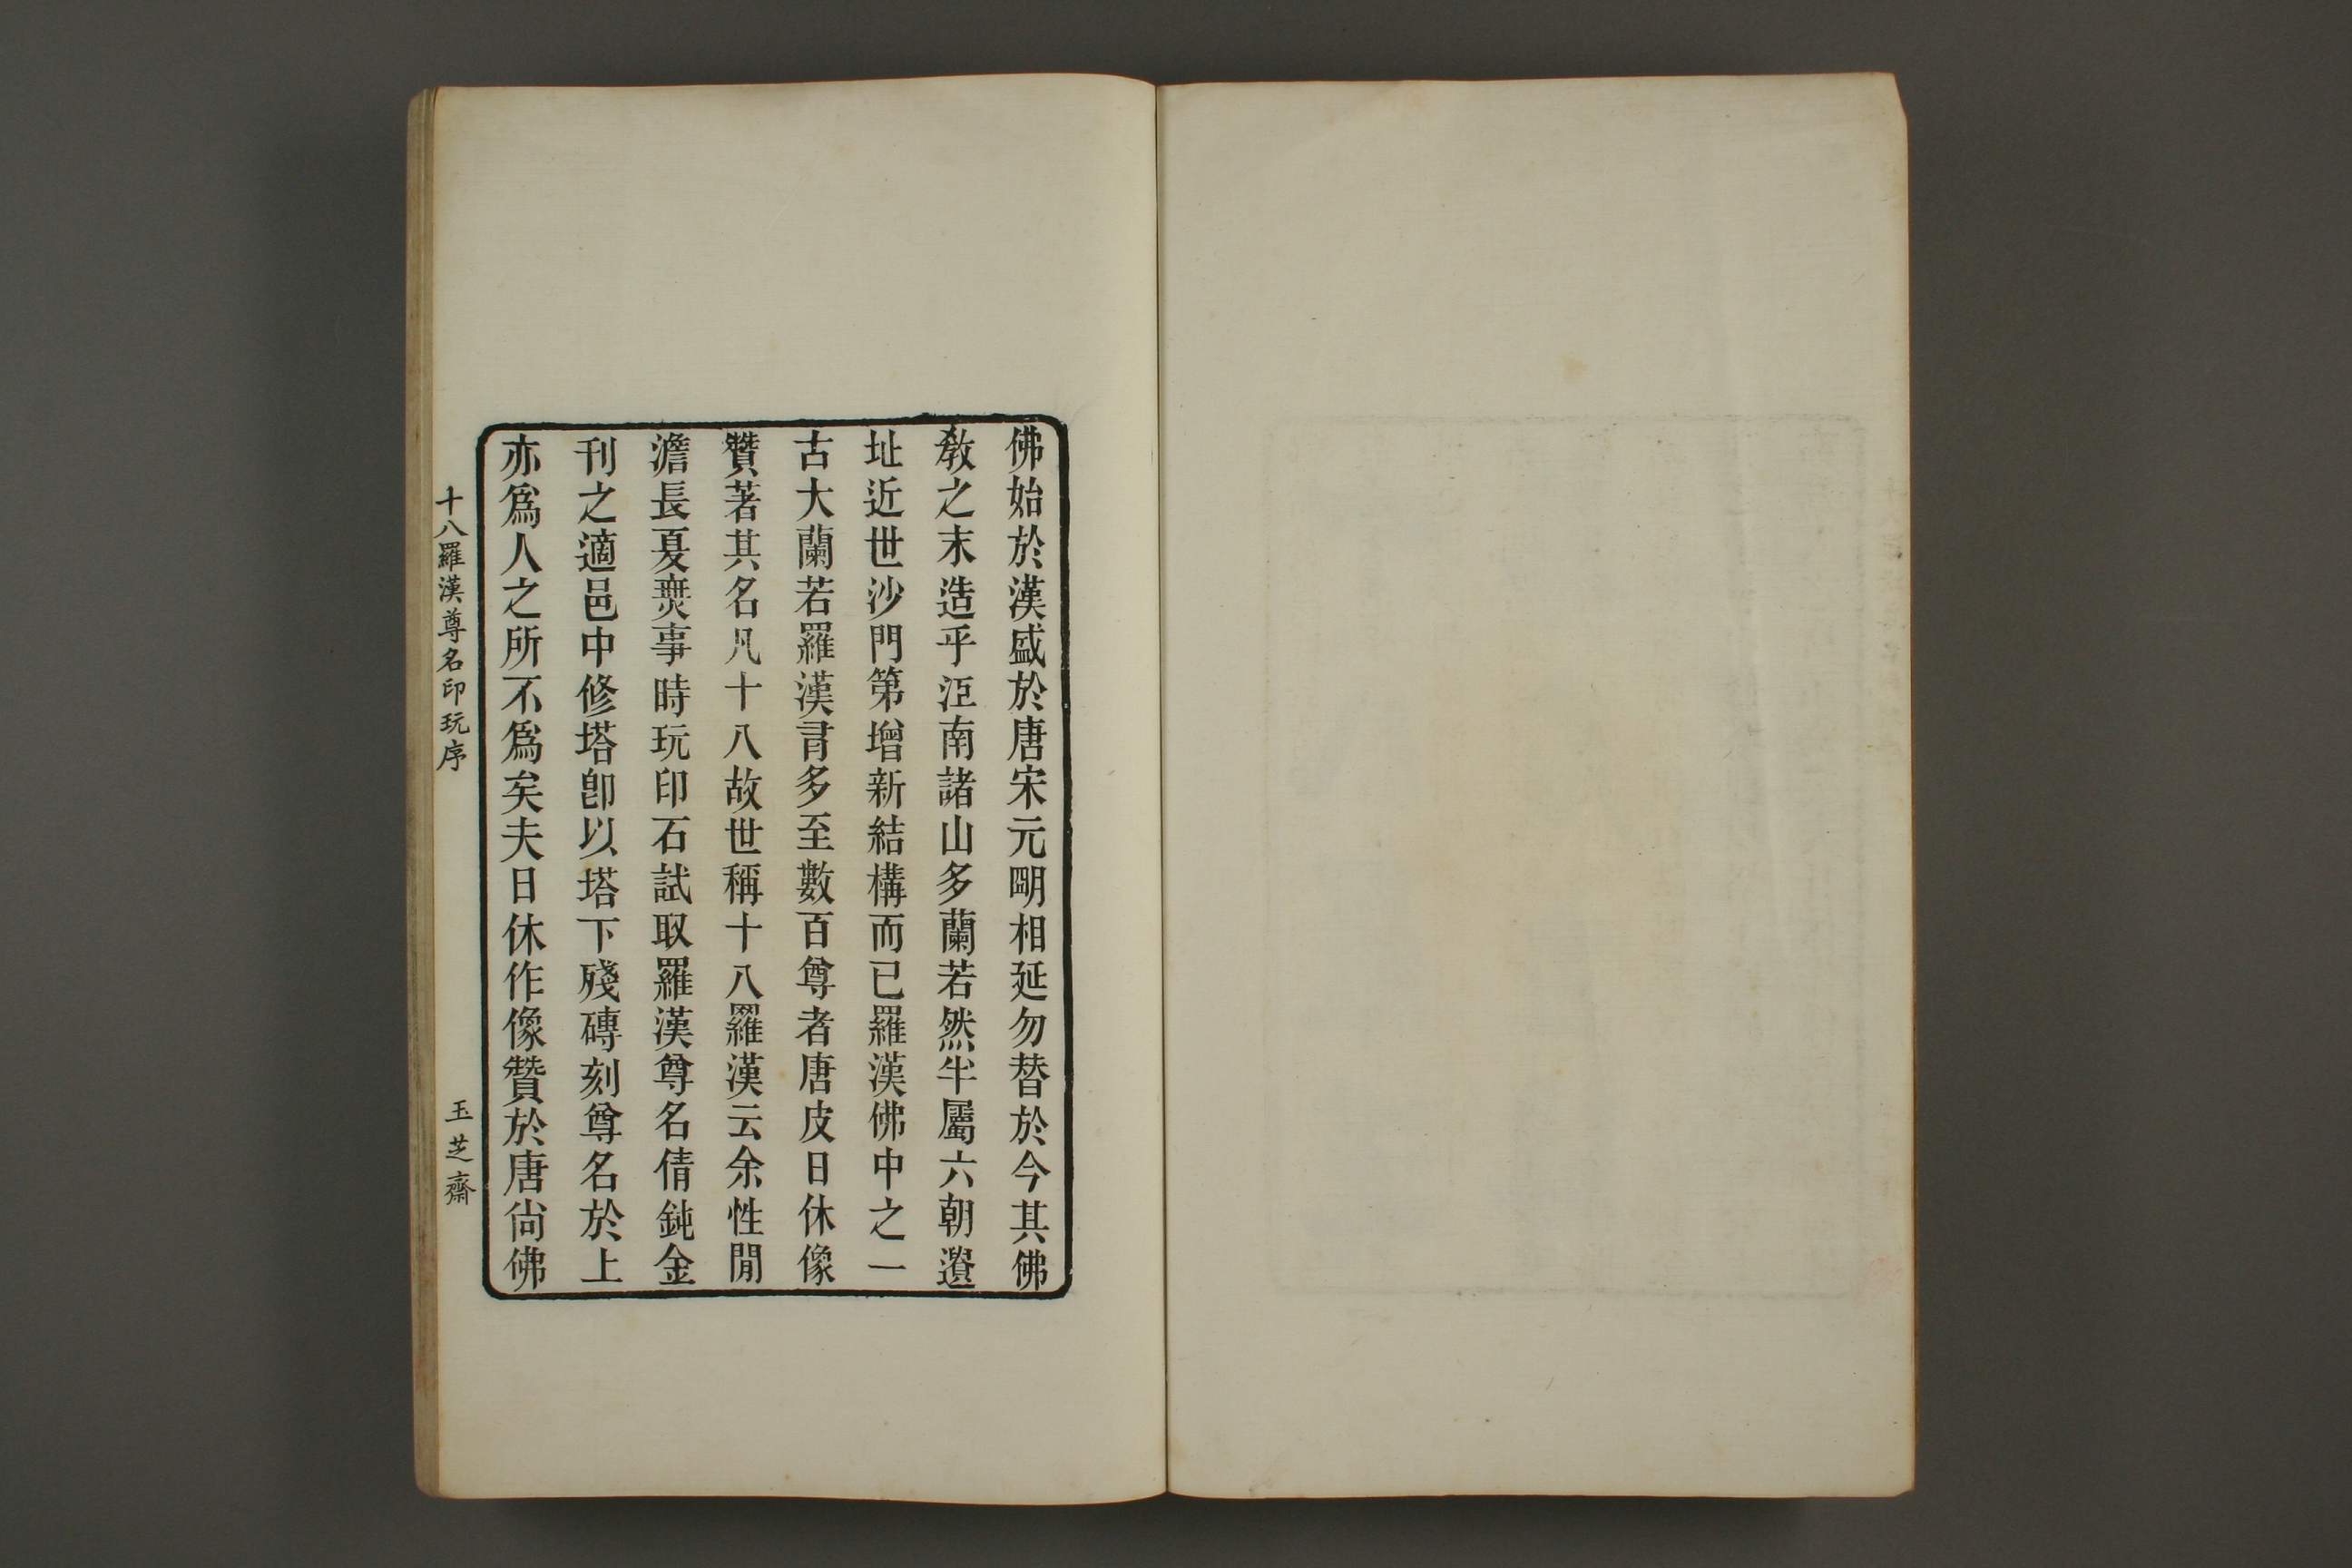 佛始於漢盛於唐宋元朙相延勿替於今其佛
教之末造乎江南諸山多蘭若然半屬六朝遺
址近世沙門第增新結構而已羅漢佛中之一
古大蘭若羅漢有多至數百尊者唐皮日休像
贊著其名凡十八故世稱十八羅漢云余性閒
澹長夏無事時玩印石試取羅漢尊名倩鈍金
刊之適邑中修塔卽以塔下殘磚刻尊名於上
亦爲人之所不爲矣夫日休作像贊於唐尙佛
十八羅漢尊名印玩序
玉芝齋